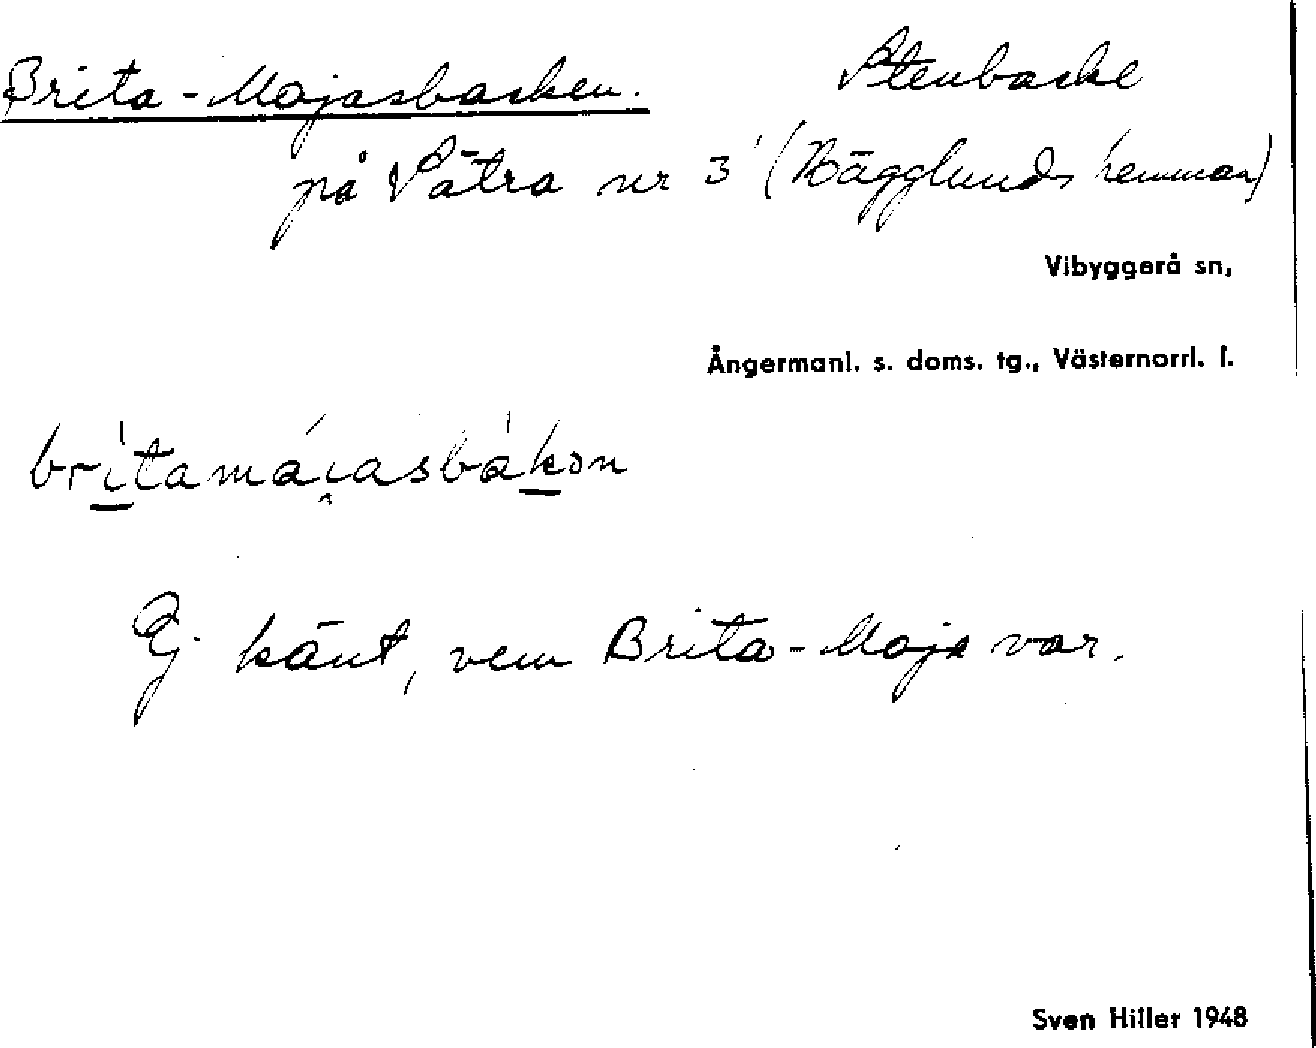 Brita-Majasbacken. Stenbacke
på Sätra nr 3 (Hägglunds hemman)
Vibyggerå sn,
Ångermanl. s. doms. tg., Västernorrl. l.
Ej känt, vem Brita-Maja var.
Sven Hiller 1948